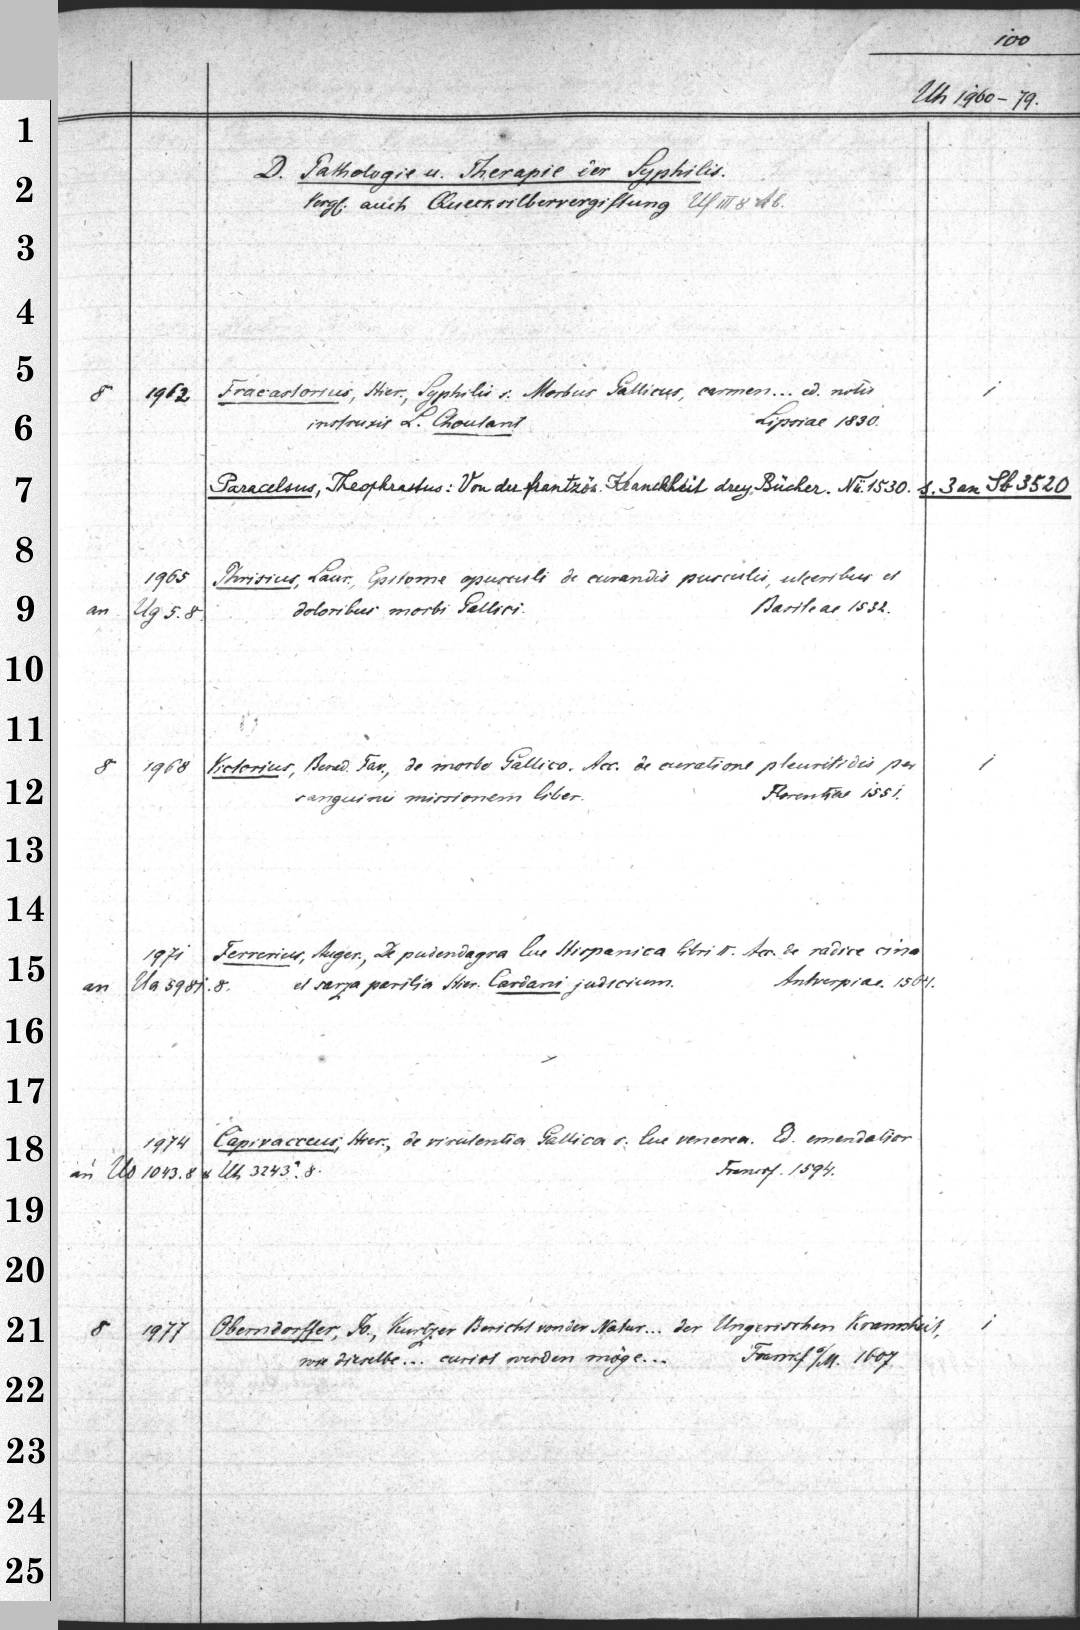 100
Uh 1960-79.
1
D. Pathologie u. Therapie der Syphilis.
2
Vergl. auch Quecksilbervergiftung Uf III 8 Ab.
3
4
5
8 1962 Fracastorius, Hier., Syphilis s. Morbus Gallicus, carmen... ed. notis 1
6 instruxit L. Choulant Lipsiae 1830.
7 Paracelsus, Theophrastus: Von der frantzös. Kranckheit drey Bücher. Nü. 1530. s. 3 an Sb 3520
8
1965 Phrisius, Laur., Epitome opusculi de curandis pusculis, ulceribus et
9 an Ug 5.8. doloribus morbi Gallici. Basileae 1532.
10
11
8 1968 Victorius, Bened. Fav., de morbo Gallico. Acc. de curatione pleuritidis per 1
12 sanguinis missionem liber. Florentiae 1551.
13
14
1971 Ferrerius, Auger., De pudendagra lue Hispanica libri II. Acc. de radice cina
15 an Ua 5981.8. et sarza parilia Hier. Cardani judicium. Antverpiae. 1564.
16
17
1974 Capivacceus, Hier., de virulentia Gallica s. lue venerea. Ed. emendatior
18
an 1043.8 & Uh 3243a.8. Francof. 1594.
19
20
21 8 1977 Oberndorffer, Jo., Kurtzer Bericht von der Natur... der Ungerischen Krannkheit, 1
wie dieselbe... curirt werden möge... Francf a/M. 1607
22
23
24
25